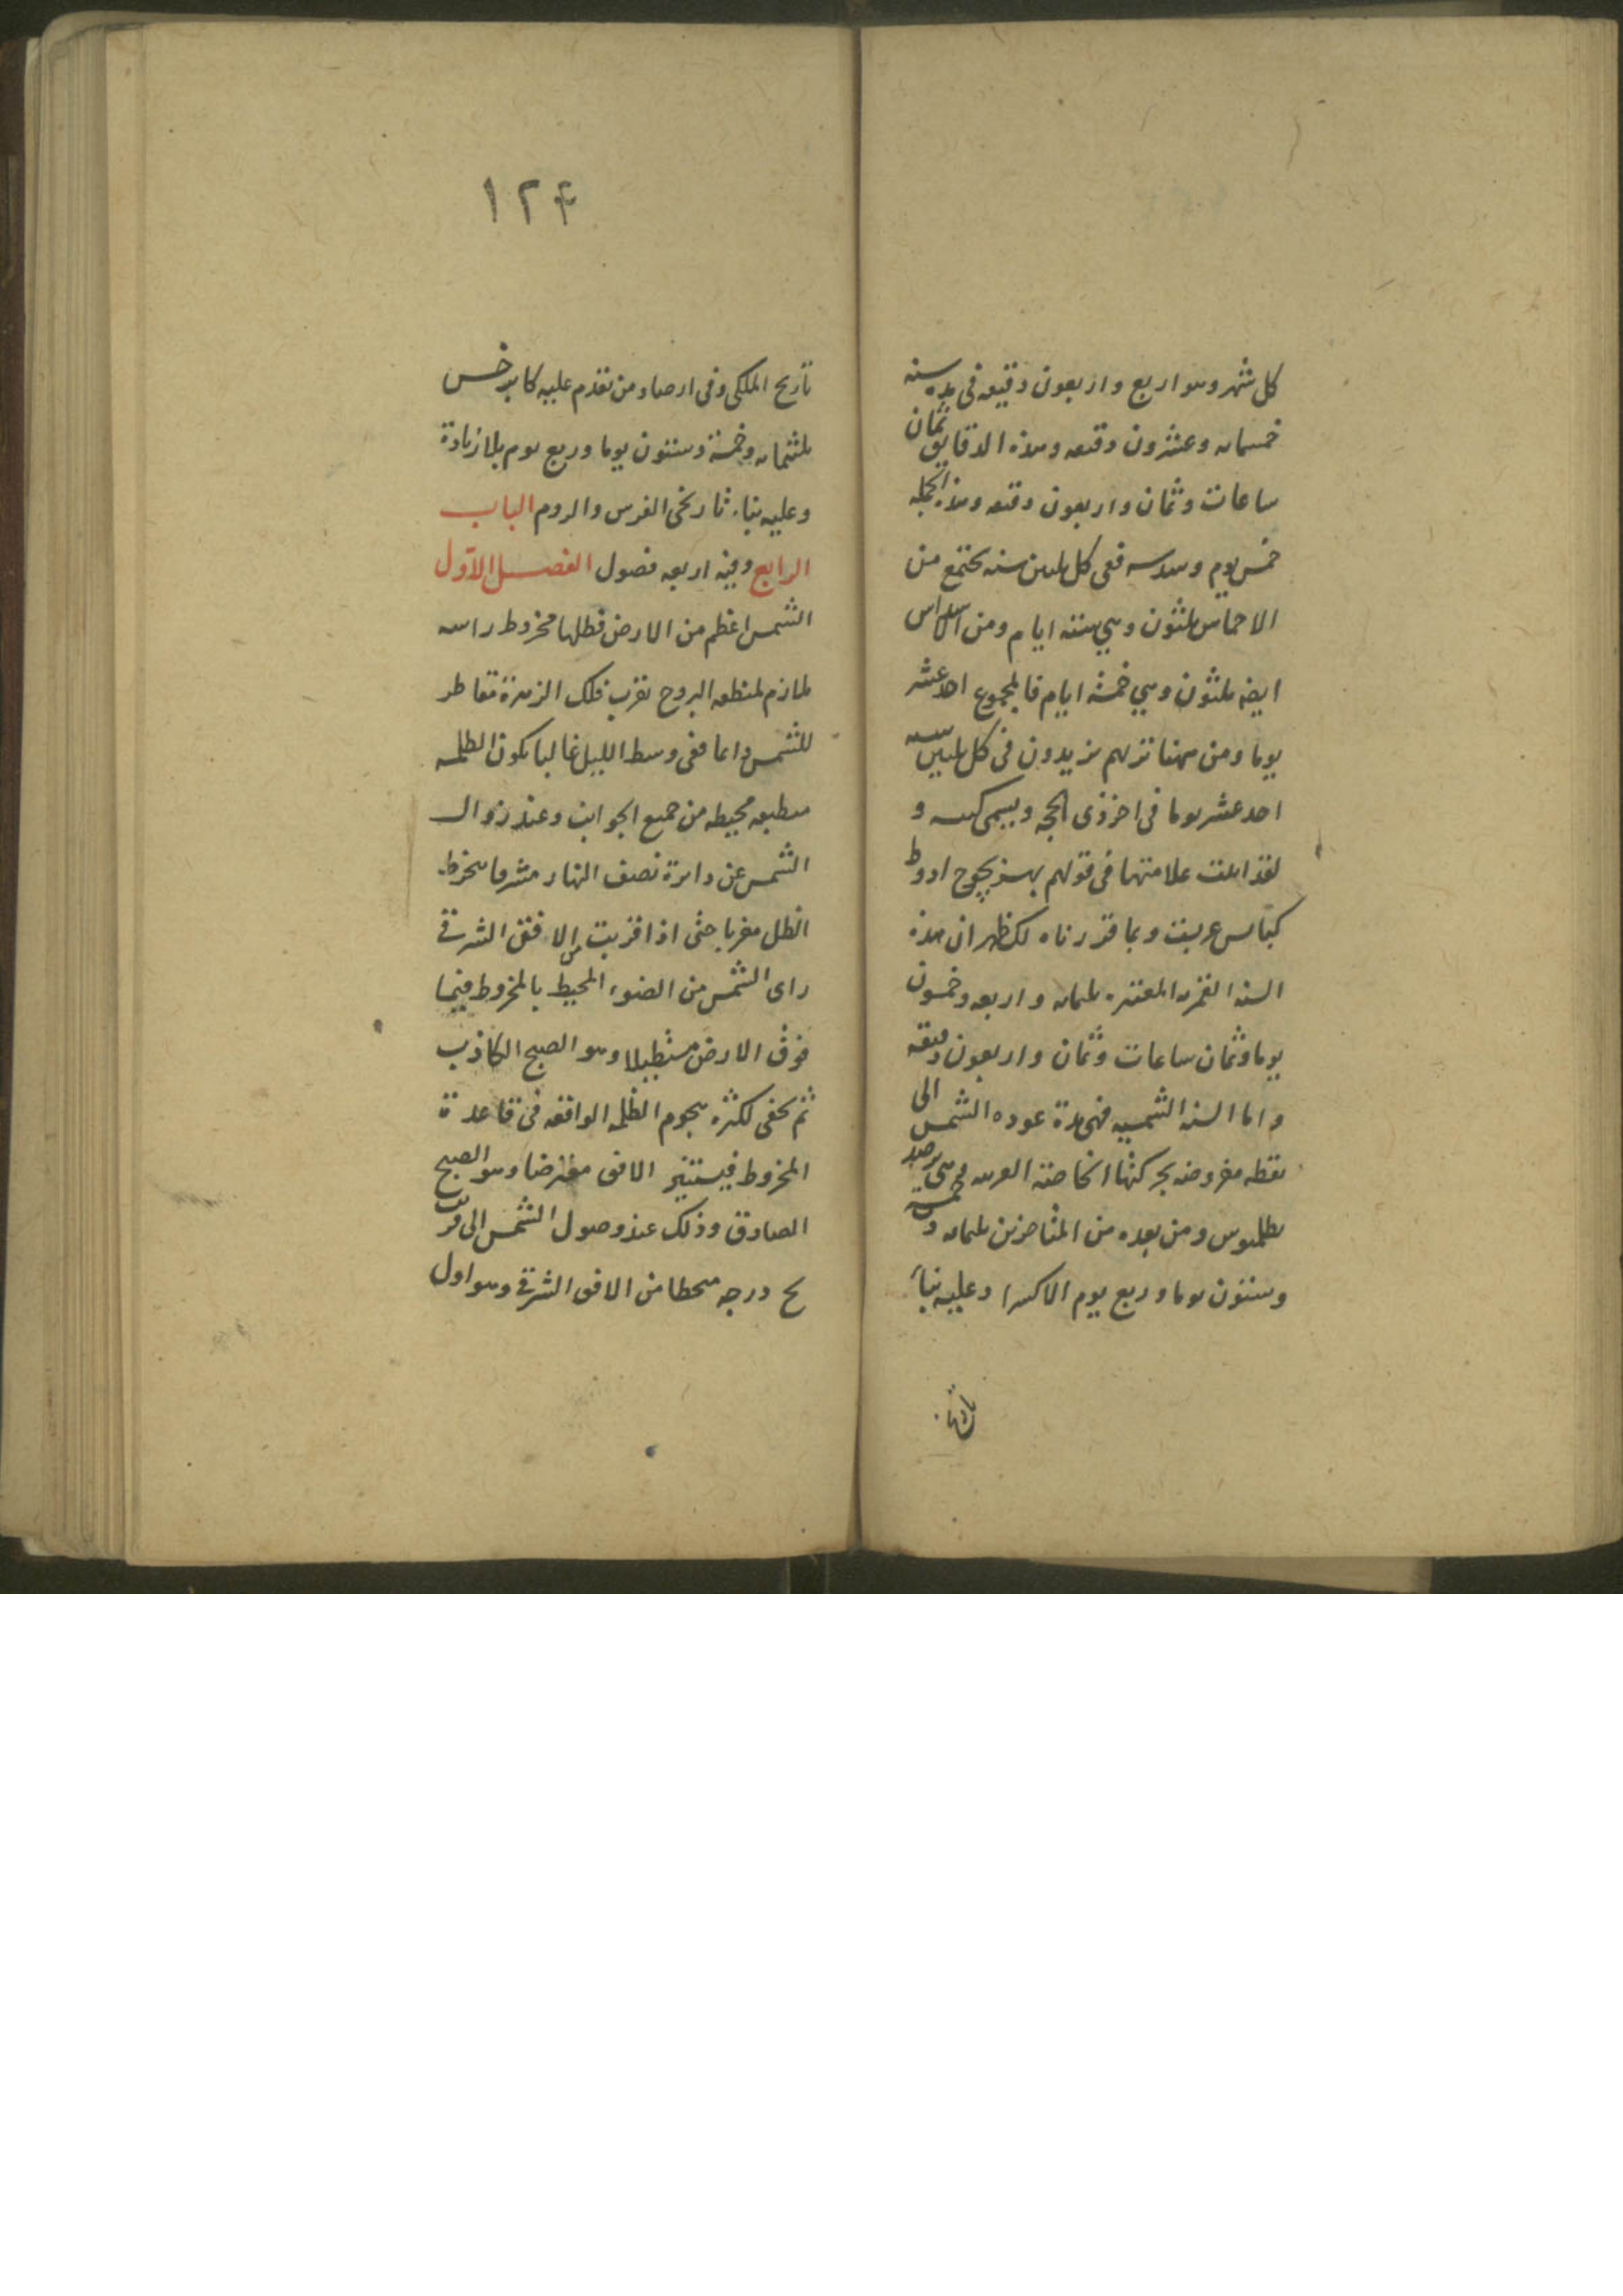 كل شهر وهو اربع واربعون دقيقه فى مده سنه
خمسمايه وعشرون دقيقه وهذه الدقايق ثمان
ساعات وثمان واربعون دقيقه وهذه الجمله
خمس يوم وسدسه ففى كل ثلثين سنه يجتمع من
الاخماس ثلثون وهي ستة ايام ومن الاسداس
ايضا ثلثون وهي خمسة ايام فالمجموع احد عشر
يوما ومن ههنا تريهم يزيدون فى كل ثلثين سنه
احد عشر يوما فى اخر ذى الحجه ويسمى كبيسه و
لقد علامتها فى قولهم بهزيجوح ادوط
كبايس عربيت وبما قررناه لك ظهر ان هذه
السنه القمريه المعتبره ثلثمايه واربعه وخمسون
يوما وثمان ساعات وثمان واربعون دقيقه
واما السنه الشمسيه فهى مدة عوده الشمس الى
نقطه مفروضه بحركتها الخاصة الغربيه فهى برصد
بطلميوس ومن بعده من المتاخرين ثلثمايه وخمسة
وستون يوما وربع يوم الا كسرا وعليه بناء
تاريخ
١٢٤
تاريخ الملكى وفى ارصاد من تقدم عليه كابرخس
ثلثمايه وخمسة وستون يوما وربع يوم بلا زيادة
وعليه بناء تاريخى الفرس والروم الباب
الرابع وفيه اربعه فصول الفصل الاول
الشمس اعظم من الارض فظلها مخروط راسه
ملازم لمنطقه البروج بقرب فلك الزهرة مقاطر
للشمس دايما ففى وسط الليل غالبا يكون الظلمه
منطبقه محيطه من جميع الجوانب وعند زوال
الشمس عن دايرة نصف النهار مشرقا ينخرط
الظل مغربا حتى اذا قربت من الافق الشرقى
راى الشمس من الضوء المحيط بالمخروط فيما
فوق الارض مستطيلا وهو الصبح الكاذب
ثم يخفى لكثرة هجوم الظلمه الواقعه فى قاعدة
المخروط فيستنير الافق معترضا وهو الصبح
الصادق وذلك عند وصول الشمس الى قرب
يح درجه منحطا من الافق الشرقى وهو اول